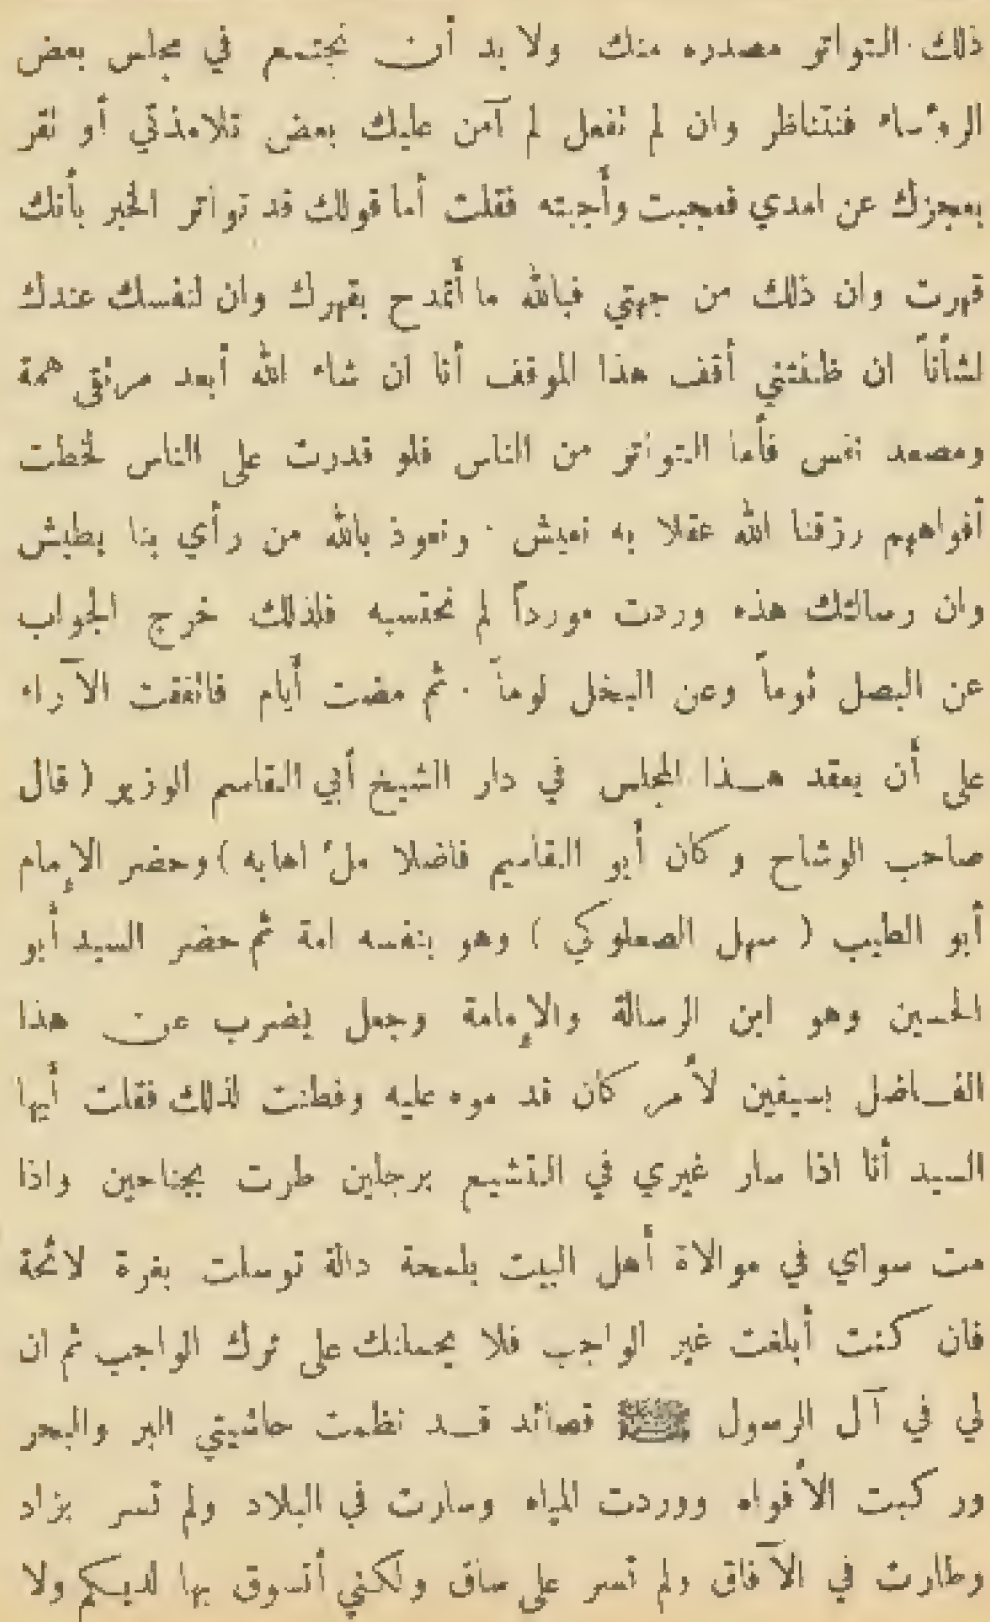 ذلك التواتر مصدره منك ولا بد أن نجتمع في مجلس بعض
الرؤساء فنتناظر وان لم تفعل لم آمن عليك بعض تلامذتي أو تقر
بعجزك عن امدي فعجبت وأجبته فقلت أما قولك قد تواتر الخبر بأنك
قهرت وان ذلك من جهتي فبالله ما أتمدح بقهرك وان لنفسك عندك
لشأناً ان ظننتني أقف هذا الموقف أنا ان شاء الله أبعد مرتقى همة
ومصعد نفس فأما التواتر من الناس فلو قدرت على الناس لخطت
أفواههم رزقنا الله عقلا به نعيش . ونعوذ بالله من رأي بنا يطيش
وان رسالتك هذه وردت مورداً لم نحتسبه فلذلك خرج الجواب
عن البصل ثوماً وعن البخل لوماً . ثم مضت أيام فاتفقت الآراء
على أن يعقد هذا المجلس في دار الشيخ أبي القاسم الوزير (قال
صاحب الوشاح وكان أبو القاسم فاضلا ملئ اهابه) وحضر الإمام
أبو الطيب (سهل الصعلوكي) وهو بنفسه امة ثم حضر السيد أبو
الحسين وهو ابن الرسالة والإمامة وجعل يضرب عن هذا
الفاضل بسيفين لأمر كان قد موه عليه وفطنت لذلك فقلت أيها
السيد أنا اذا سار غيري في التشيع برجلين طرت بجناحين واذا
مت سواي في موالاة أهل البيت بلمحة دالة توسلت بغرة لائحة
فان كنت أبلغت غير الواجب فلا يحملنك على ترك الواجب ثم ان
لي في آل الرسول ﷺ قصائد قد نظمت حاشيتي البر والبحر
وركبت الأفواه ووردت المياه وسارت في البلاد ولم تسر بزاد
وطارت في الآفاق ولم تسر على ساق ولكني أتسوق بها لديكم ولا